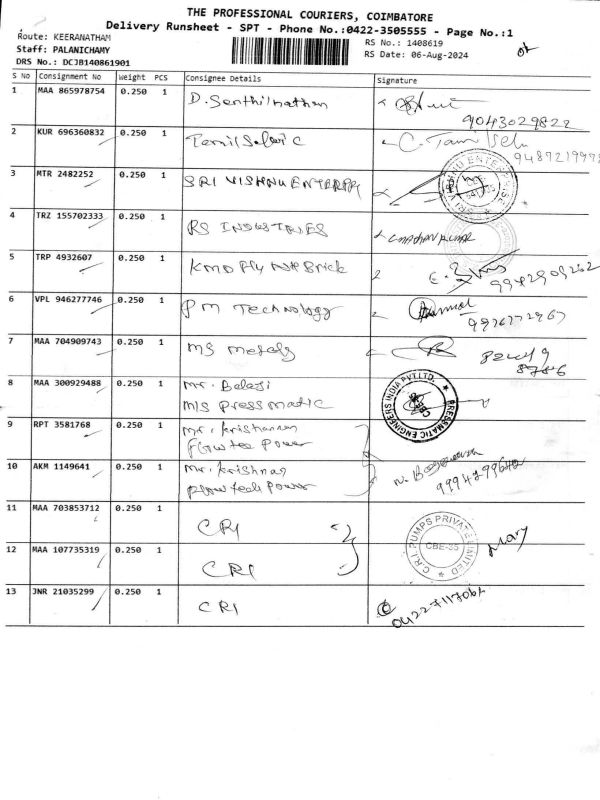 THE PROFESSIONAL COURIERS, COIMBATORE
Delivery Runsheet - SPT - Phone No.:0422-3505555 - Page No.:1
Route: KEERANATHAM
RS No.: 1408619
Staff: PALANICHAMY
RS Date: 06-Aug-2024
DRS No.: DCJB140861901
S No Consignment No Weight PCS Consignee Details Signature
1 MAA 865978754 0.250 1 D. Senthilnathan
9043029822
2 KUR 696360832 0.250 1 Tamil Selvi C C. Tam Selvi
3 MTR 2482252 0.250 1 SRI VISHNU ENTERPRI
4 TRZ 155702333 0.250 1 RS INDUSTRIES
5 TRP 4932607 0.250 1 KMD Fly Ash Brick
6 VPL 946277746 0.250 1 PM Technology
7 MAA 704909743 0.250 1 MS Metals
8 MAA 300929488 0.250 1 Mr. Balaji
M/s Pressmatic
PRESSMATIC ENGINEERS INDIA PVT.LTD.
9 RPT 3581768 0.250 1 Mr. Krishanan
Power
10 AKM 1149641 0.250 1 Mr. Krishnan
Power
11 MAA 703853712 0.250 1 CRI
12 MAA 107735319 0.250 1 CRI
C.R.I. PUMPS PRIVATE LIMITED
CBE-35
Mary
13 JNR 21035299 0.250 1 CRI